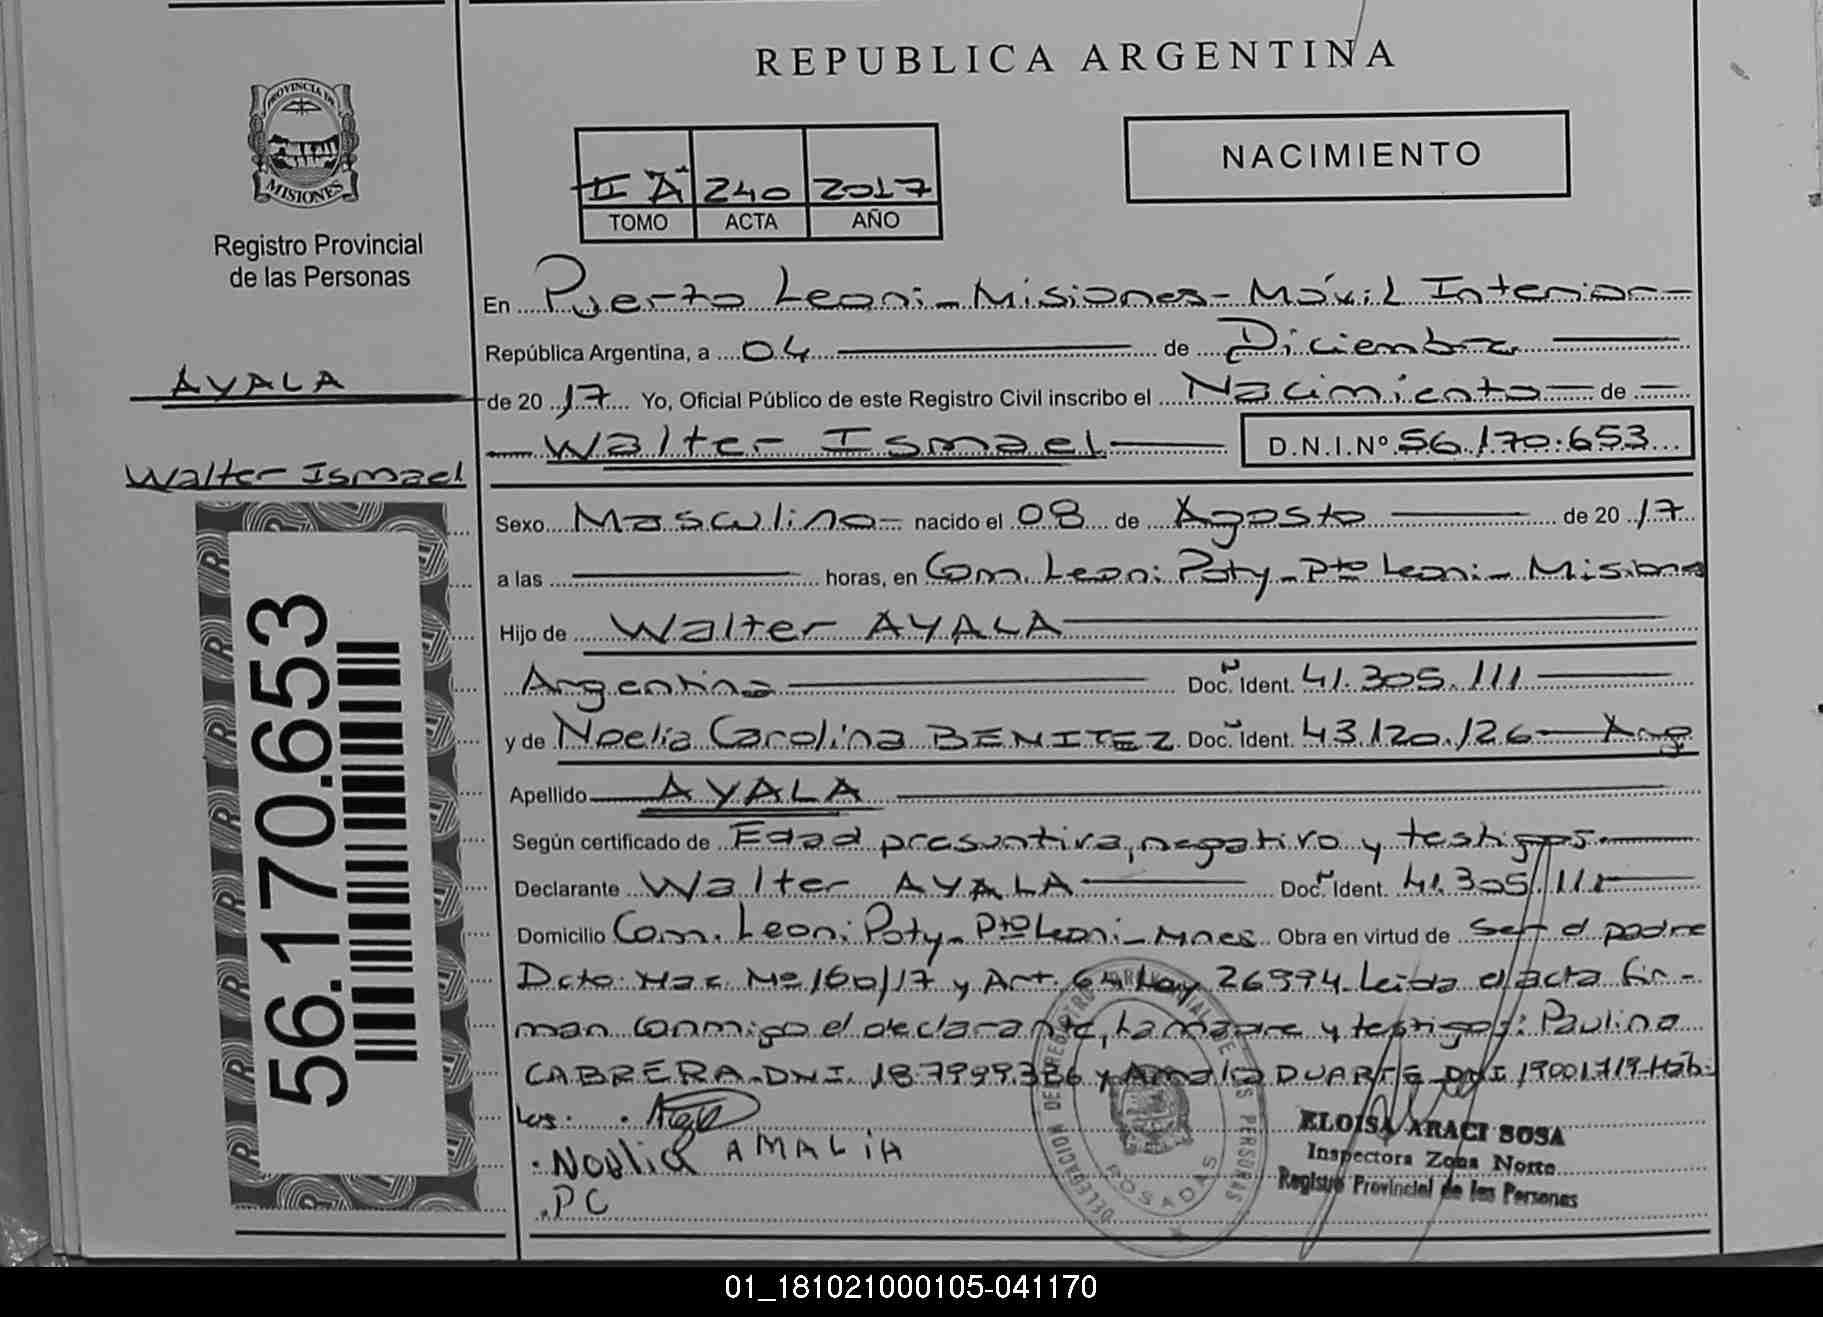 REPUBLICA ARGENTINA
PROVINCIA DE
MISIONES
Registro Provincial
de las Personas
II "A" 240 2017
TOMO ACTA AÑO
NACIMIENTO
AYALA
Walter Ismael
56.170.653
En Puerto Leoni - Misiones - Móvil Interior -
República Argentina, a 04 de Diciembre
de 2017 Yo, Oficial Público de este Registro Civil inscribo el Nacimiento de
Walter Ismael D.N.I.Nº 56.170.653
Sexo Masculino - nacido el 08 de Agosto de 2017
a las horas, en Com. Leoni Poty - Pto Leoni - Misiones
Hijo de Walter AYALA
Argentina Doc. Ident. 41.305.111
y de Noelia Carolina BENITEZ Doc. Ident. 43.120.126 - Arg
Apellido AYALA
Según certificado de Edad presuntiva, negativo y testigos.
Declarante Walter AYALA Doc. Ident. 41.305.111
Domicilio Com. Leoni Poty - Pto Leoni - Mnes Obra en virtud de Ser el padre
Dcto. Nac. Nº 160/17 y Art. 64 Ley 26994. Leída el acta fir-
man conmigo el declarante, la madre y testigos: Paulino
CABRERA DNI. 18.799.336 y Amalia DUARTE DNI 19001719 Hábi-
les.
Noelia AMALIA
PC
DELEGACION DEL REGISTRO PROVINCIAL DE LAS PERSONAS
POSADAS
ELOISA ARACI SOSA
Inspectora Zona Norte
Registro Provincial de las Personas
01_181021000105-041170